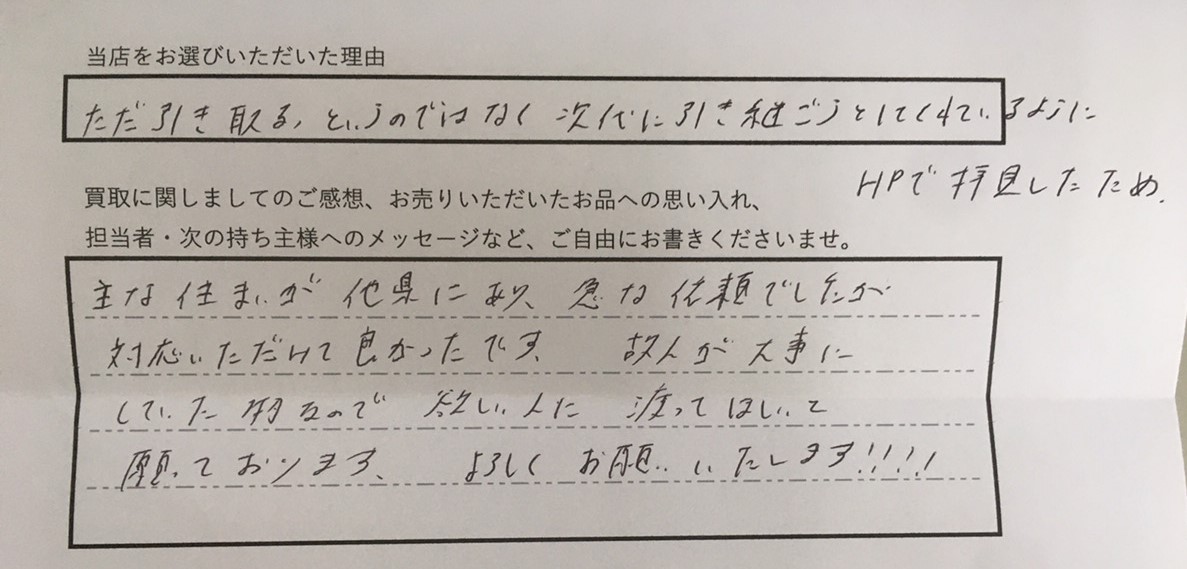 当店をお選びいただいた理由
ただ引き取る、というのではなく次代に引き継ごうとしてくれているように
HPで拝見したため.
買取に関しましてのご感想、お売りいただいたお品への思い入れ、
担当者・次の持ち主様へのメッセージなど、ご自由にお書きくださいませ。
主な住まいが他県にあり、急な依頼でしたが
対応いただけて良かったです、 故人が大事に
していた物なので 欲しい人に 渡ってほしいと
願っております、 よろしくお願いいたします!!!!